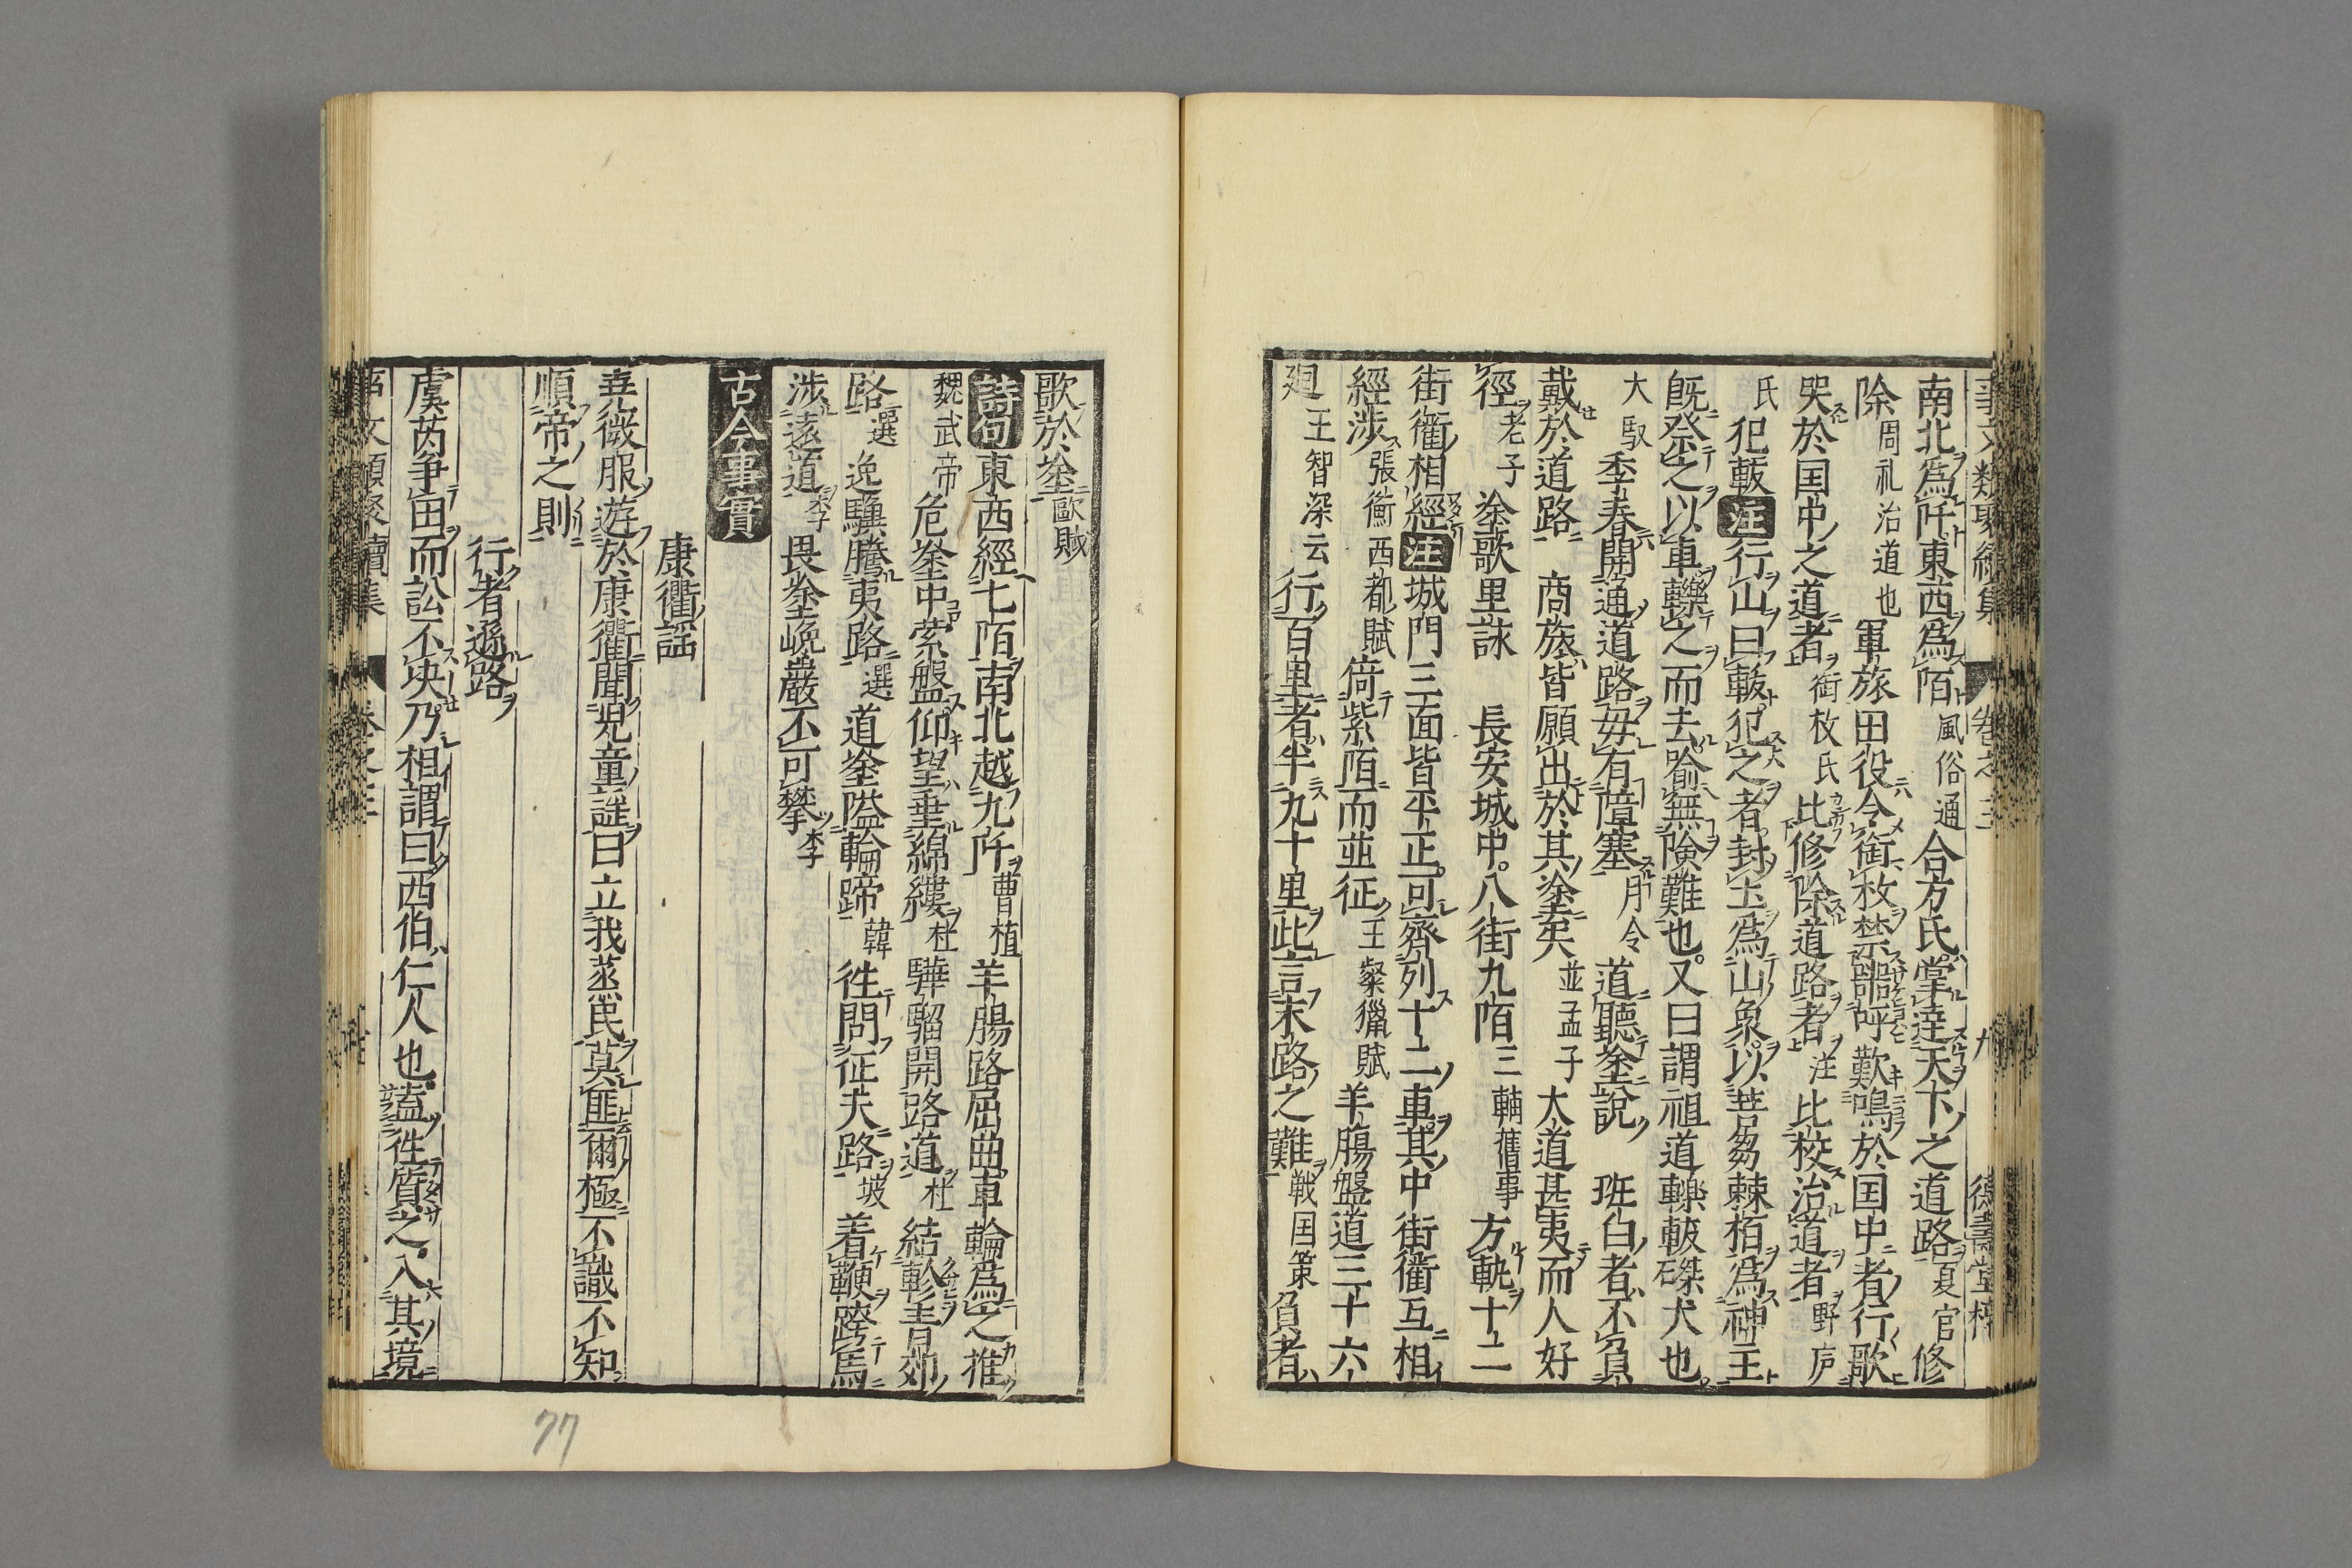 南北爲阡東西爲陌風俗通合方氏掌達天下之道路夏官修
除周礼治道也軍旅田役令銜枚禁嘂呼歎鳴於国中者行歌
哭於国中之道者銜枚氏比修除道路者注比校治道者野庐
氏犯軷注行山曰軷犯之者封土爲山象以菩芻棘栢爲神主
既祭之以車轢之而去喻無険難也又曰謂祖道轢軷磔犬也
大馭季春開通道路毋有障塞月令道聽塗說班白者不負
戴於道路商旅皆願出於其塗矣並孟子大道甚夷而人好
徑老子塗歌里詠長安城中八街九陌三輔舊事方軌十二
街衢相經注城門三面皆平正可齊列十二車其中街衢互相
經涉張衡西都賦倚紫陌而並征王粲獵賦羊膓盤道三十六
廻王智深云行百里者半九十里此言末路之難戦国策負者
歌於塗歐賦
詩句東西經七陌南北越九阡曹植羊膓路屈曲車輪爲之摧
魏武帝危塗中縈盤仰望垂綿縷杜驊騮開路道杜結軫青郊
路選逸驥騰夷路選道塗隘輪蹄韓徃問征夫路坡着鞭跨馬
涉遠道李畏塗巉巖不可攀李
古今事實
康衢謡
尭微服遊於康衢聞児童謡曰立我蒸民莫匪爾極不識不知
順帝之則
行者遜路
虞芮争田而訟不决乃相謂曰西伯仁人也盍徃質之入其境
77